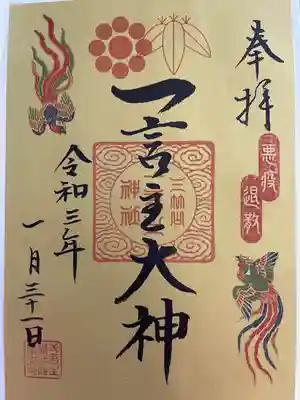 奉拝
悪疫
退散
一言主大神
三柱
神社
令和三年
一月三十一日